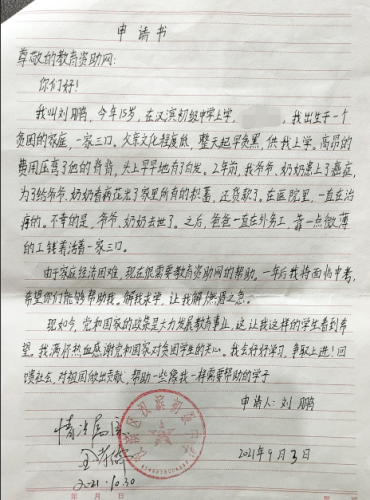 申请书
尊敬的教育资助网:
你们好!
我叫刘刚鹏,今年15岁,在汉滨初级中学上学,我出生于一个
贫困的家庭,一家三口。父亲文化程度低,整天起早贪黑,供我上学。高昂的
费用压弯了他的脊背,头上早早地有了白发。2年前,我爷爷、奶奶患上了癌症,
为了给爷爷、奶奶看病花光了家里所有的积蓄,还贷款了。在医院里,一直在治
病的。不幸的是,爷爷、奶奶去世了。之后,爸爸一直在外务工,靠一点微薄
的工钱养活着一家三口。
由于家庭经济困难,现在很需要教育资助网的帮助。一年后我将面临中考,
希望你们能够帮助我。解我求学,让我解燃眉之急。
现如今,党和国家的政策是大力发展教育事业,这让我这样的学生看到希
望。我满怀热血感谢党和国家对贫困学生的关心。我会好好学习,争取上进!回
馈社会,对祖国做出贡献,帮助一些像我一样需要帮助的学子
申请人:刘刚鹏
情况属实
2021年9月3日
2021.10.30
年 月 日